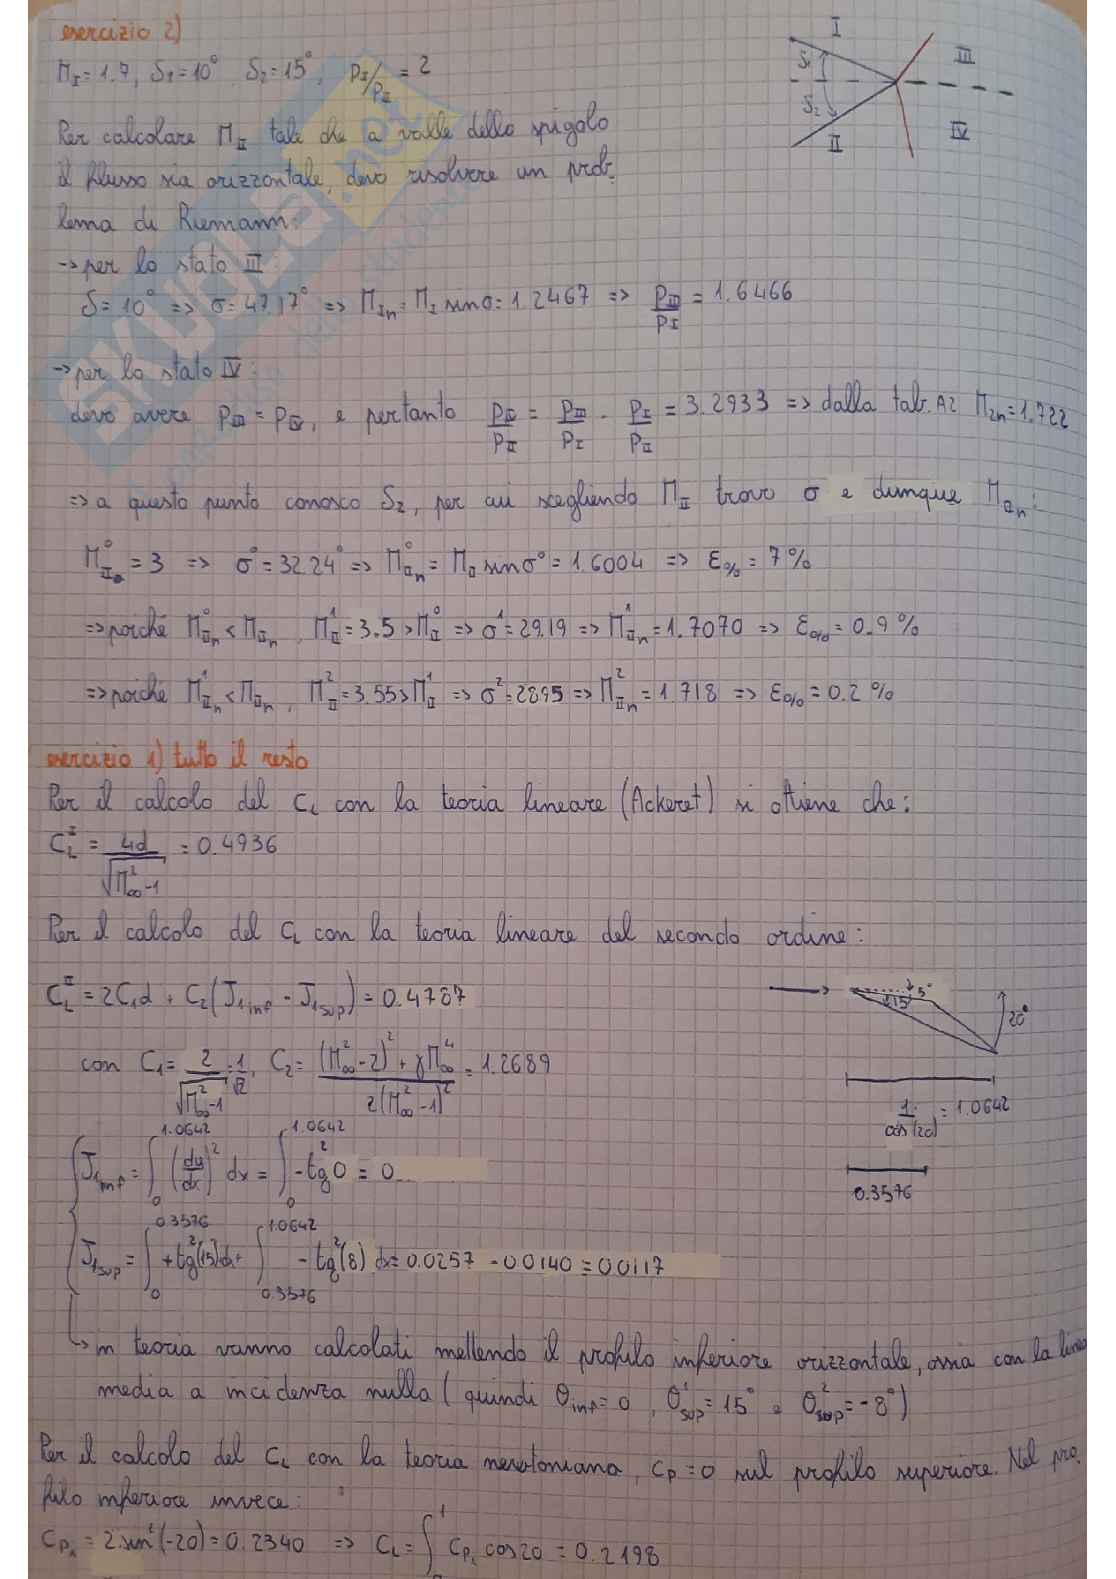 esercizio 2)
M_I = 1.7, δ_1 = 10° δ_2 = 15°, p_I/p_II = 2
Per calcolare M_II tale che a valle dello spigolo
il flusso sia orizzontale, devo risolvere un prob-
lema di Riemann:
I
II
III
IV
δ_1
δ_2
→ per lo stato III:
δ = 10° => σ = 47.17° => M_In = M_I sinσ = 1.2467 => p_III/p_I = 1.6466
→ per lo stato IV:
devo avere p_III = p_IV, e pertanto p_IV/p_II = p_III/p_I · p_I/p_II = 3.2933 => dalla tab. A2 M_2n = 1.722
=> a questo punto conosco δ_2, per cui scegliendo M_II trovo σ e dunque M_IIn:
M_II^0 = 3 => σ^0 = 32.24° => M_IIn^0 = M_II sinσ^0 = 1.6004 => ε_% = 7%
=> poiché M_IIn^0 < M_IIn, M_II^1 = 3.5 > M_II^0 => σ^1 = 29.19 => M_IIn^1 = 1.7070 => ε_% = 0.9%
=> poiché M_IIn^1 < M_IIn, M_II^2 = 3.55 > M_II^1 => σ^2 = 28.95 => M_IIn^2 = 1.718 => ε_% = 0.2%
esercizio 1) tutto il resto
Per il calcolo del C_L con la teoria lineare (Ackeret) si ottiene che:
C_L^I = 4α/√(M_∞^2-1) = 0.4936
Per il calcolo del C_L con la teoria lineare del secondo ordine:
C_L^II = 2C_1α + C_2(J_1inf - J_1sup) = 0.4787
con C_1 = 2/√(M_∞^2-1) = 1/√2, C_2 = ((M_∞^2-2)^2 + γM_∞^4)/(2(M_∞^2-1)^2) = 1.2689
5°
15°
20°
1/cos(20) = 1.0642
0.3576
J_1inf = ∫_0^1.0642 (dy/dx)^2 dx = ∫_0^1.0642 -tg^2 0 = 0
J_1sup = ∫_0^0.3576 +tg^2(15)dx + ∫_0.3576^1.0642 -tg^2(8) dx = 0.0257 - 0.0140 = 0.0117
↳ in teoria vanno calcolati mettendo il profilo inferiore orizzontale, ossia con la linea
media a incidenza nulla (quindi θ_inf = 0, θ_sup^1 = 15° e θ_sup^2 = -8°)
Per il calcolo del C_L con la teoria newtoniana, C_p = 0 sul profilo superiore. Nel pro-
filo inferiore invece:
C_pi = 2 sin^2(-20) = 0.2340 => C_L = ∫_0^1 C_pi cos20 = 0.2198